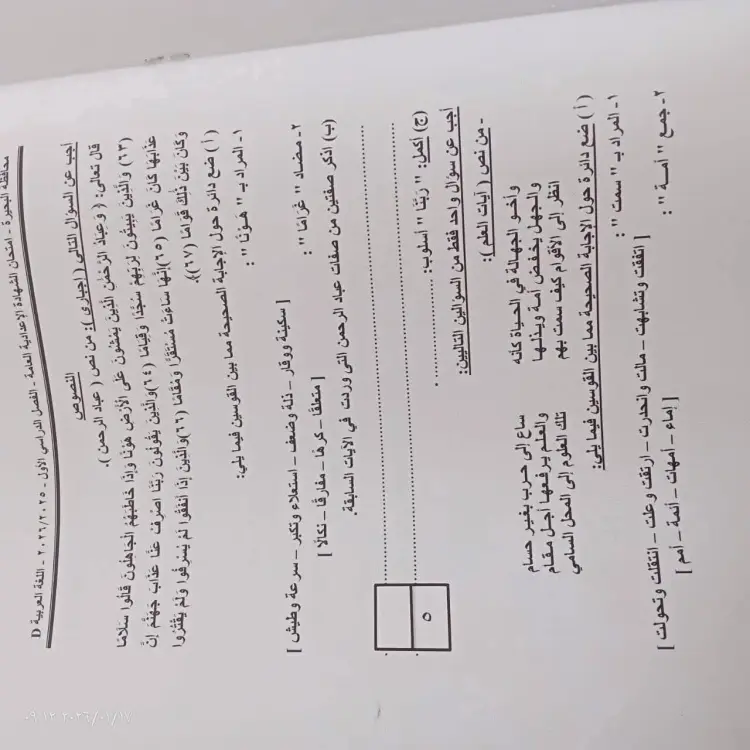 محافظة البحيرة - امتحان الشهادة الإعدادية العامة - الفصل الدراسي الأول - ٢٠٢٦/٢٠٢٥ - اللغة العربية D
النصوص
أجب عن السؤال التالي ( إجبارى ): من نص ( عباد الرحمن ).
قال تعالى: ( وَعِبَادُ الرَّحْمَٰنِ الَّذِينَ يَمْشُونَ عَلَى الْأَرْضِ هَوْنًا وَإِذَا خَاطَبَهُمُ الْجَاهِلُونَ قَالُوا سَلَامًا
(٦٣) وَالَّذِينَ يَبِيتُونَ لِرَبِّهِمْ سُجَّدًا وَقِيَامًا (٦٤) وَالَّذِينَ يَقُولُونَ رَبَّنَا اصْرِفْ عَنَّا عَذَابَ جَهَنَّمَ إِنَّ
عَذَابَهَا كَانَ غَرَامًا (٦٥) إِنَّهَا سَاءَتْ مُسْتَقَرًّا وَمُقَامًا (٦٦) وَالَّذِينَ إِذَا أَنْفَقُوا لَمْ يُسْرِفُوا وَلَمْ يَقْتُرُوا
وَكَانَ بَيْنَ ذَٰلِكَ قَوَامًا (٦٧)).
( أ ) ضع دائرة حول الإجابة الصحيحة مما بين القوسين فيما يلي:
١- المراد بـ " هَوْنًا " :
[ سكينة ووقار - ذلة وضعف - استعلاء وتكبر - سرعة وطيش ]
٢- مضاد " غَرَامًا " :
[ متعلقًا - كرهًا - مفارقًا - نكالًا ]
(ب) اذكر صفتين من صفات عباد الرحمن التى وردت في الآيات السابقة.
(ج) أكمل: " رَبَّنَا " أسلوب:
٥
أجب عن سؤال واحد فقط من السؤالين التاليين:
- من نص ( آيات العلم ):
وأخو الجهالة في الحياة كأنه ساع إلى حرب بغير حسام
والجهل يخفض أمة ويذلها والعلم يرفعها أجل مقام
انظر إلى الأقوام كيف سمت بهم تلك العلوم إلى المحل السامي
( أ ) ضع دائرة حول الإجابة الصحيحة مما بين القوسين فيما يلي:
١- المراد بـ " سمت " :
[ اتفقت وتشابهت - مالت وانحدرت - ارتقت وعلت - انتقلت وتحولت ]
٢- جمع " أمة " :
[ إماء - أمهات - أئمة - أمم ]